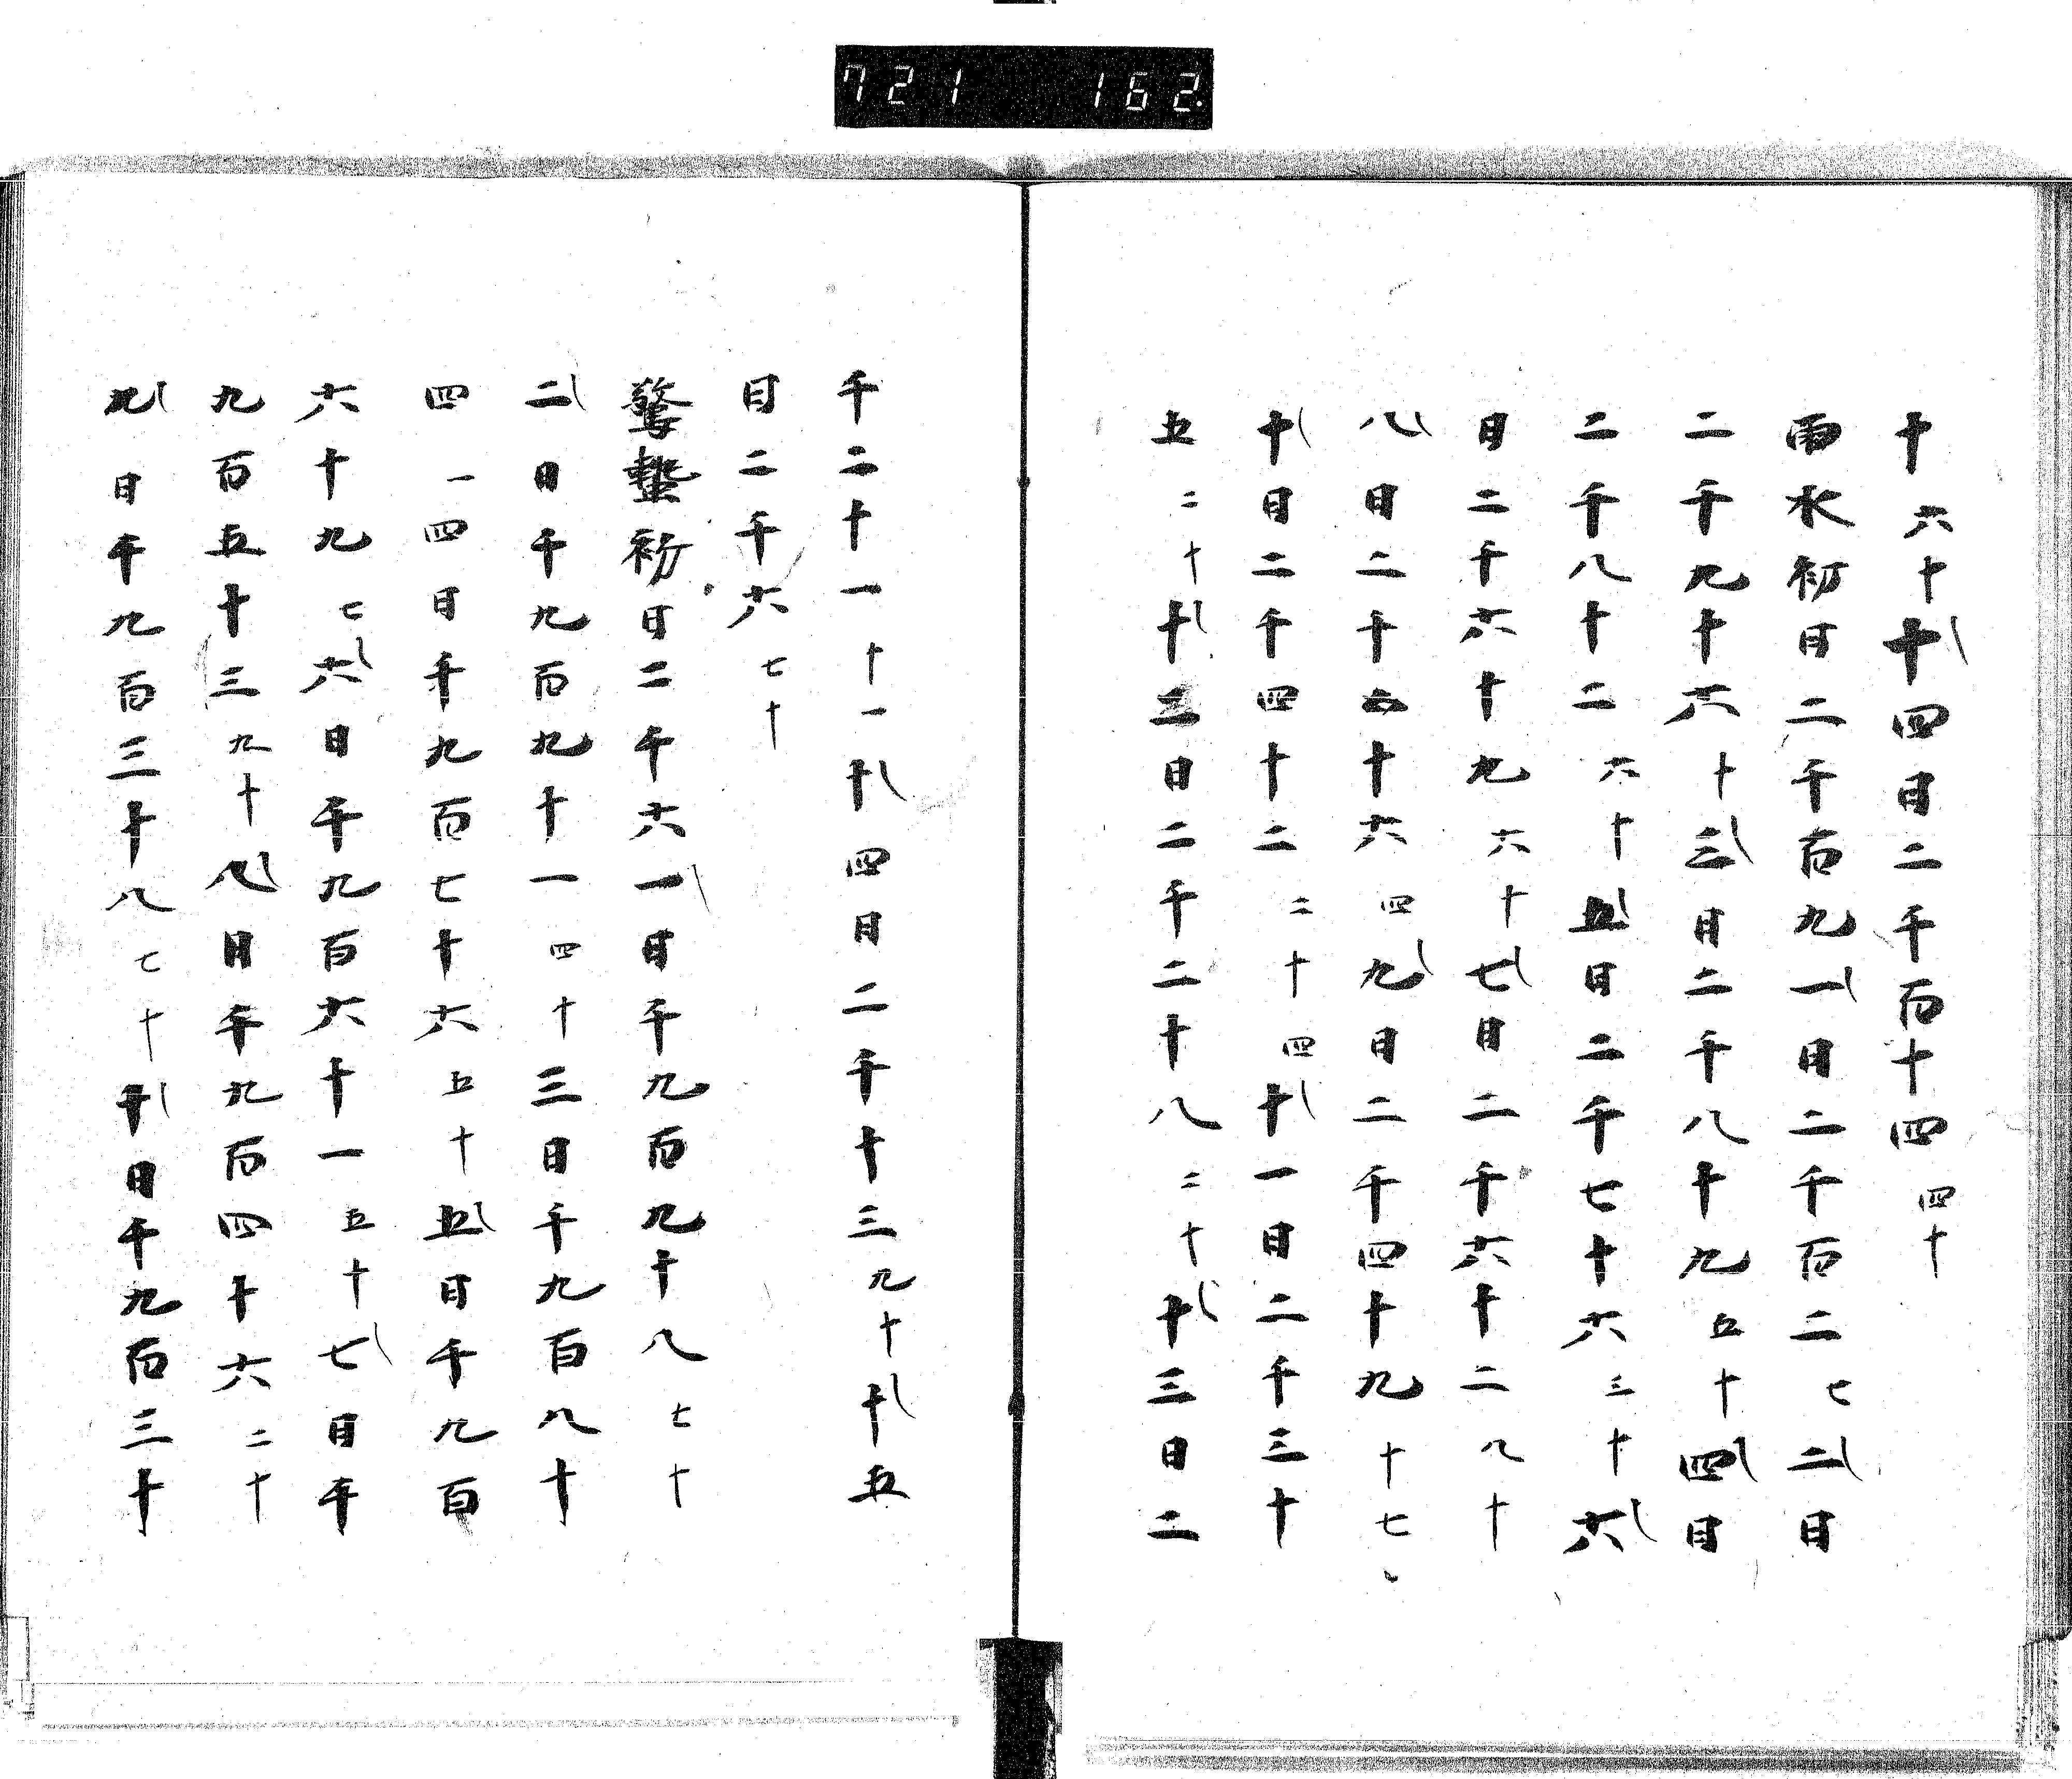 721 162
十六十十四日二千百十四四十
雨水初日二千百九一日二千百二七二日
二千九十六十三日二千八十九五十四日
二千八十二六十五日二千七十六三十六
日二千六十九六十七日二千六十二八十
八日二千五十六四九日二千四十九十七
十日二千四十二二十四十一日二千三十
五二十十二日二千二十八二十十三日二
千二十一十一十四日二千十三九十十五
日二千六七十
驚蟄初日二千六一日千九百九十八七十
二日千九百九十一四十三日千九百八十
四一四日千九百七十六五十五日千九百
六十九七六日千九百六十一五十七日千
九百五十三九十八日千九百四十六二十
九日千九百三十八七十十日千九百三十